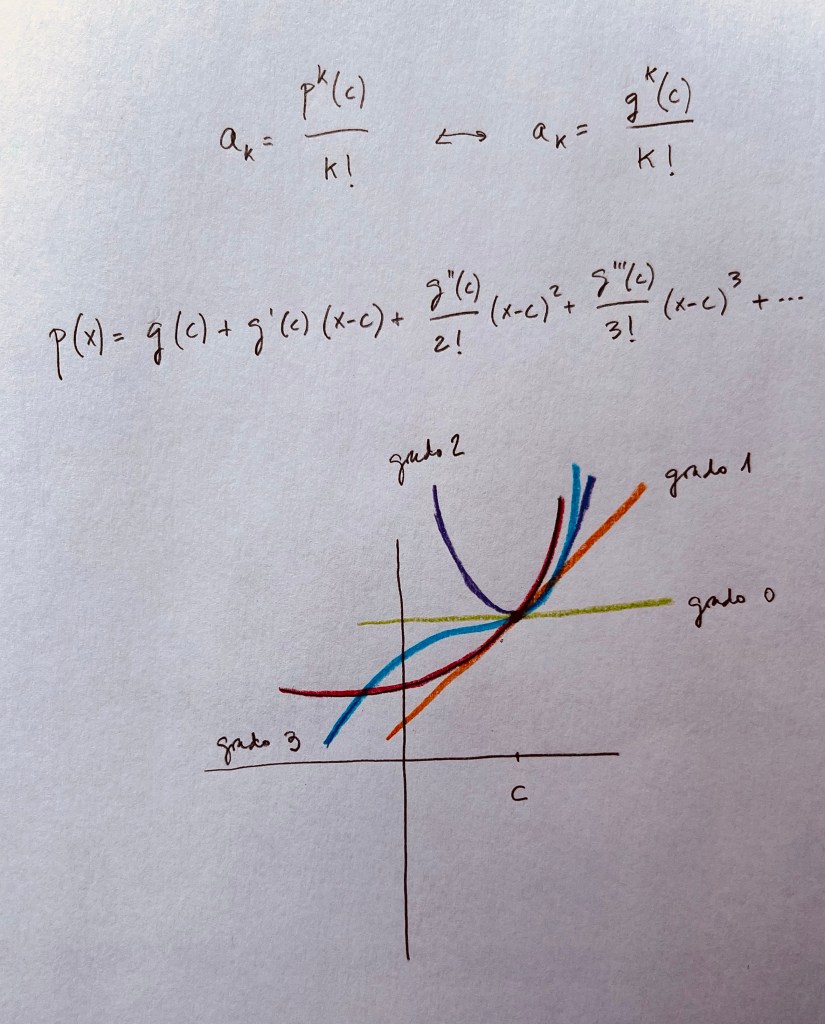 a_k = p^k(c) / k! ↔ a_k = g^k(c) / k!
p(x) = g(c) + g'(c) (x-c) + g''(c)/2! (x-c)^2 + g'''(c)/3! (x-c)^3 + ...
grado 2
grado 1
grado 0
grado 3
c